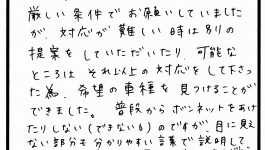 厳しい条件でお願いしていました
が、対応が難しい時は別の
提案をしていただいたり、可能な
ところはそれ以上の対応をして下さっ
た為、希望の車種を見つけることが
できました。普段からボンネットをあけ
たりしない(できない💧)のですが、目に見え
ない部分も分かりやすい言葉で説明して